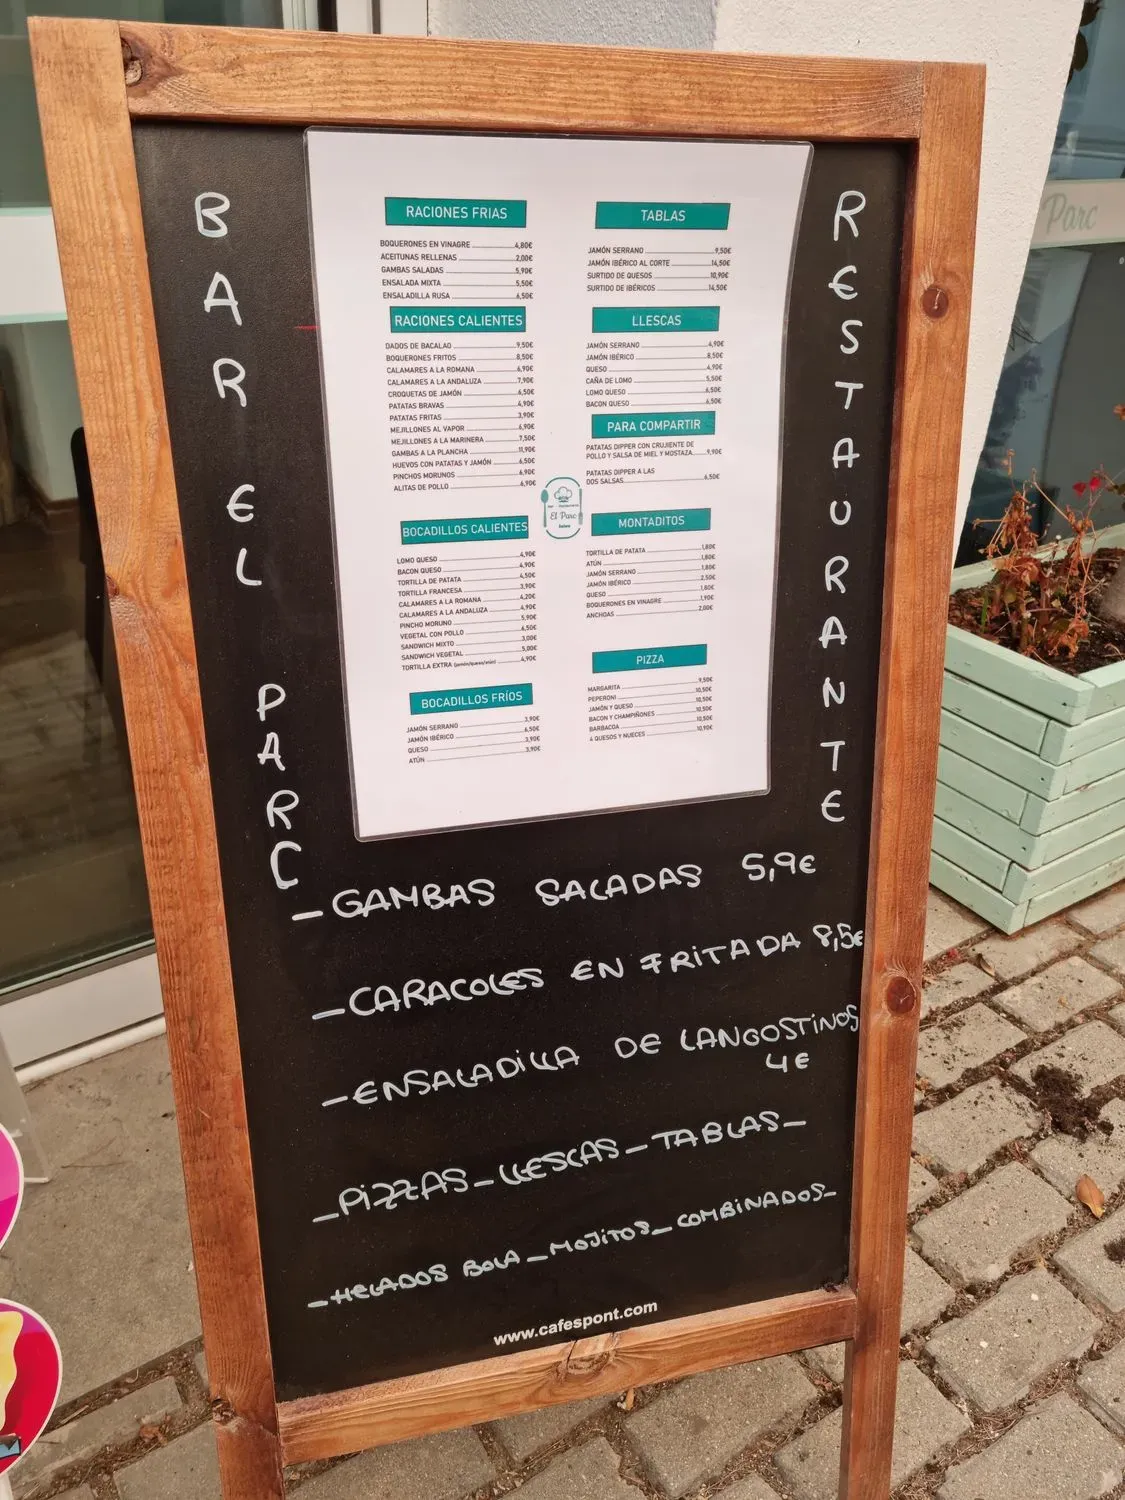 BAR EL PARC
RESTAURANTE
RACIONES FRIAS
BOQUERONES EN VINAGRE 4,80€
ACEITUNAS RELLENAS 2,00€
GAMBAS SALADAS 5,90€
ENSALADA MIXTA 5,50€
ENSALADILLA RUSA 6,50€
RACIONES CALIENTES
DADOS DE BACALAO 9,50€
BOQUERONES FRITOS 8,50€
CALAMARES A LA ROMANA 6,90€
CALAMARES A LA ANDALUZA 7,90€
CROQUETAS DE JAMÓN 6,50€
PATATAS BRAVAS 4,90€
PATATAS FRITAS 3,90€
MEJILLONES AL VAPOR 6,90€
MEJILLONES A LA MARINERA 7,50€
GAMBAS A LA PLANCHA 11,90€
HUEVOS CON PATATAS Y JAMÓN 6,50€
PINCHOS MORUNOS 6,90€
ALITAS DE POLLO 6,90€
BOCADILLOS CALIENTES
LOMO QUESO 4,90€
BACON QUESO 4,90€
TORTILLA DE PATATA 4,50€
TORTILLA FRANCESA 3,90€
CALAMARES A LA ROMANA 4,20€
CALAMARES A LA ANDALUZA 4,90€
PINCHO MORUNO 5,90€
VEGETAL CON POLLO 6,50€
SANDWICH MIXTO 3,00€
SANDWICH VEGETAL 5,00€
TORTILLA EXTRA (jamón/queso/atún) 4,90€
BOCADILLOS FRÍOS
JAMÓN SERRANO 3,90€
JAMÓN IBÉRICO 6,50€
QUESO 3,90€
ATÚN 3,90€
TABLAS
JAMÓN SERRANO 9,50€
JAMÓN IBÉRICO AL CORTE 14,50€
SURTIDO DE QUESOS 10,90€
SURTIDO DE IBÉRICOS 14,50€
LLESCAS
JAMÓN SERRANO 4,90€
JAMÓN IBÉRICO 8,50€
QUESO 4,90€
CAÑA DE LOMO 5,50€
LOMO QUESO 6,50€
BACON QUESO 6,50€
PARA COMPARTIR
PATATAS DIPPER CON CRUJIENTE DE
POLLO Y SALSA DE MIEL Y MOSTAZA 9,90€
PATATAS DIPPER A LAS
DOS SALSAS 6,50€
El Parc
MONTADITOS
TORTILLA DE PATATA 1,80€
ATÚN 1,80€
JAMÓN SERRANO 1,80€
JAMÓN IBÉRICO 2,50€
QUESO 1,80€
BOQUERONES EN VINAGRE 1,90€
ANCHOAS 2,00€
PIZZA
MARGARITA 9,50€
PEPERONI 10,50€
JAMÓN Y QUESO 10,50€
BACON Y CHAMPIÑONES 10,50€
BARBACOA 10,50€
4 QUESOS Y NUECES 10,90€
- GAMBAS SALADAS 5,9€
- CARACOLES EN FRITADA 8,5€
- ENSALADILLA DE LANGOSTINOS
4€
- PIZZAS - LLESCAS - TABLAS -
- HELADOS BOLA - MOJITOS - COMBINADOS -
www.cafespont.com
Parc